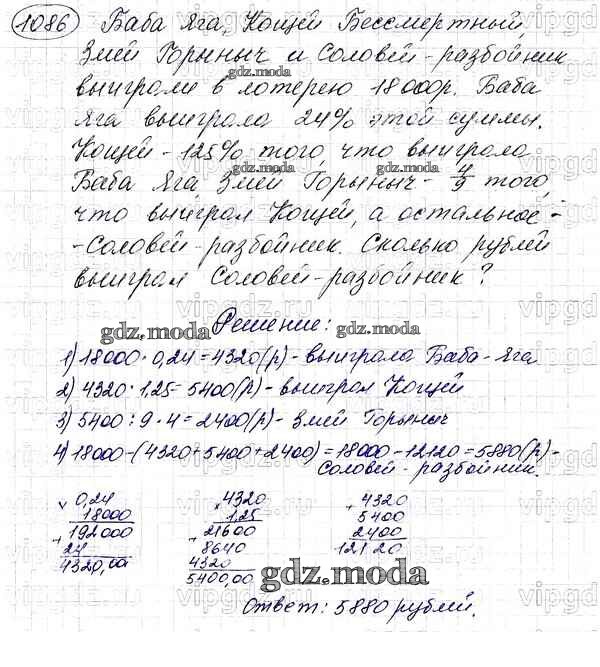 1086 Баба Яга, Кощей Бессмертный,
Змей Горыныч и Соловей-разбойник
gdz.moda
выиграли в лотерею 18000р. Баба
Яга выиграла 24% этой суммы.
Кощей - 125% того, что выиграла
gdz.moda gdz.moda
Баба Яга Змей Горыныч - 4/9 того,
что выиграл Кощей, а остальное -
- Соловей-разбойник. Сколько рублей
выиграл Соловей-разбойник?
Решение:
gdz.moda gdz.moda
1) 18000 · 0,24 = 4320 (р) - выиграла Баба-Яга
2) 4320 · 1,25 = 5400 (р) - выиграл Кощей
3) 5400 : 9 · 4 = 2400 (р) - Змей Горыныч
4) 18000 - (4320 + 5400 + 2400) = 18000 - 12120 = 5880 (р) -
Соловей-разбойник.
× 0,24 × 4320 + 4320
18000 1,25 5400
+ 192000 + 21600 2400
24 8640 12120
4320,00 4320
5400,00
gdz.moda
Ответ: 5880 рублей.